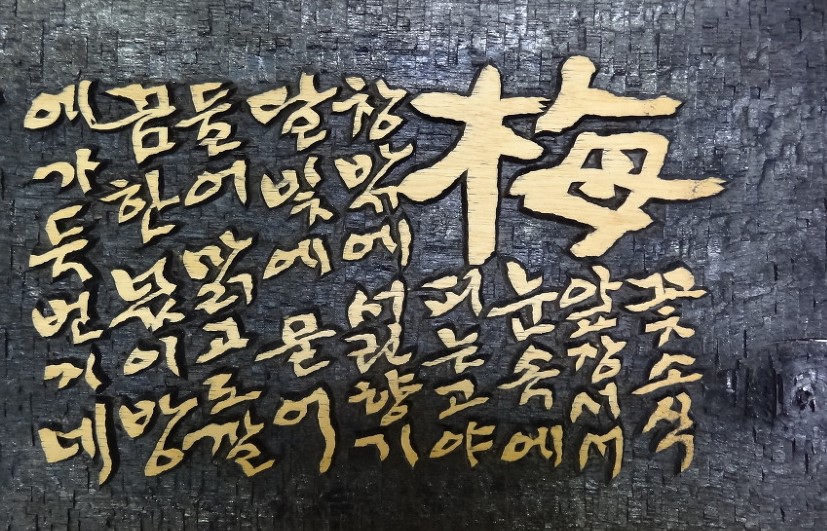 梅
꽃소식
앞장서서
눈속에
피는고야
창밖에 서린향기
달빛에 묻어
들어 맑고도깔
끔한 넋이방
에가득번지네